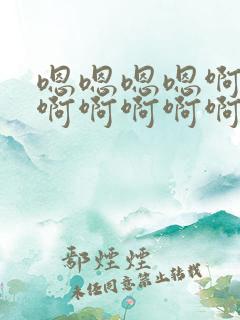 嗯嗯嗯嗯啊
啊啊啊啊啊
鄢煙煙
未经同意禁止转载